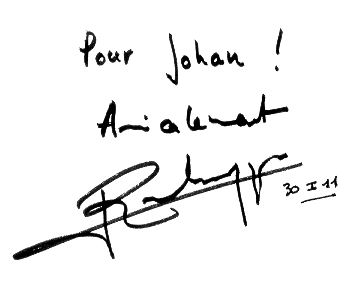 Pour Johan !
Amicalement
30 I 11